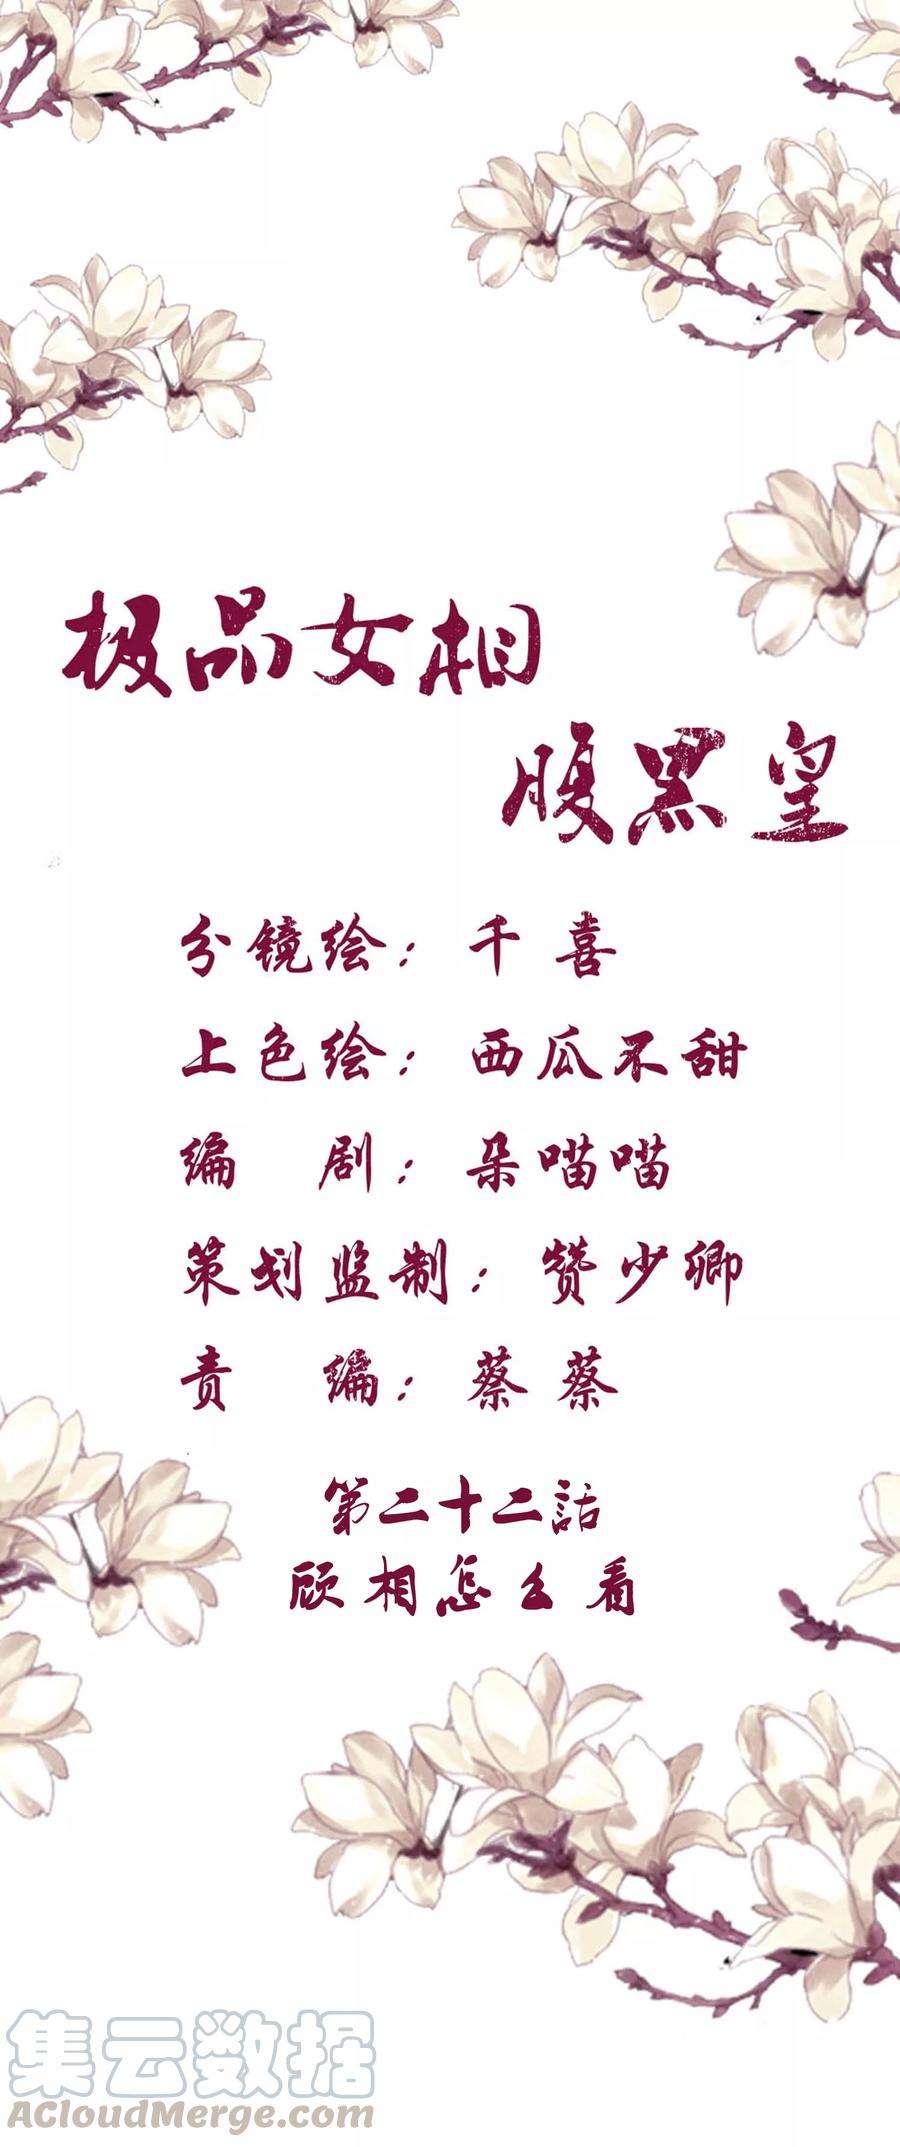 极品女相
腹黑皇
分镜绘：千喜
上色绘：西瓜不甜
编 剧：朵喵喵
策划监制：赞少卿
责 编：蔡蔡
第二十二話
顾相怎么看
集云数据
ACloudMerge.com